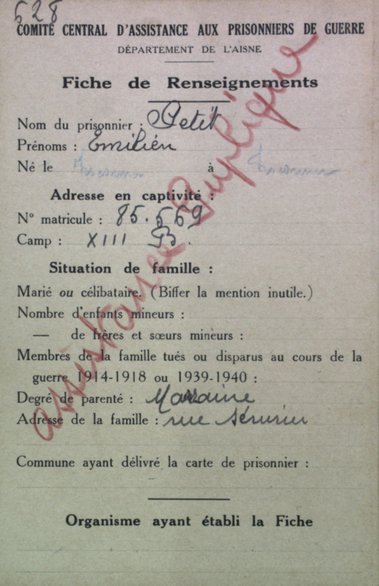 528
COMITÉ CENTRAL D'ASSISTANCE AUX PRISONNIERS DE GUERRE
DÉPARTEMENT DE L'AISNE
Fiche de Renseignements
Nom du prisonnier : Petit
Prénoms : Emilien
Né le à
Adresse en captivité :
N° matricule : 85.569
Camp : XIII B.
Situation de famille :
Marié ou célibataire. (Biffer la mention inutile.)
Nombre d'enfants mineurs :
— de frères et sœurs mineurs :
Membres de la famille tués ou disparus au cours de la
guerre 1914-1918 ou 1939-1940 :
Degré de parenté : Marraine
Adresse de la famille : rue Sérurier
Commune ayant délivré la carte de prisonnier :
Organisme ayant établi la Fiche
assistance Publique